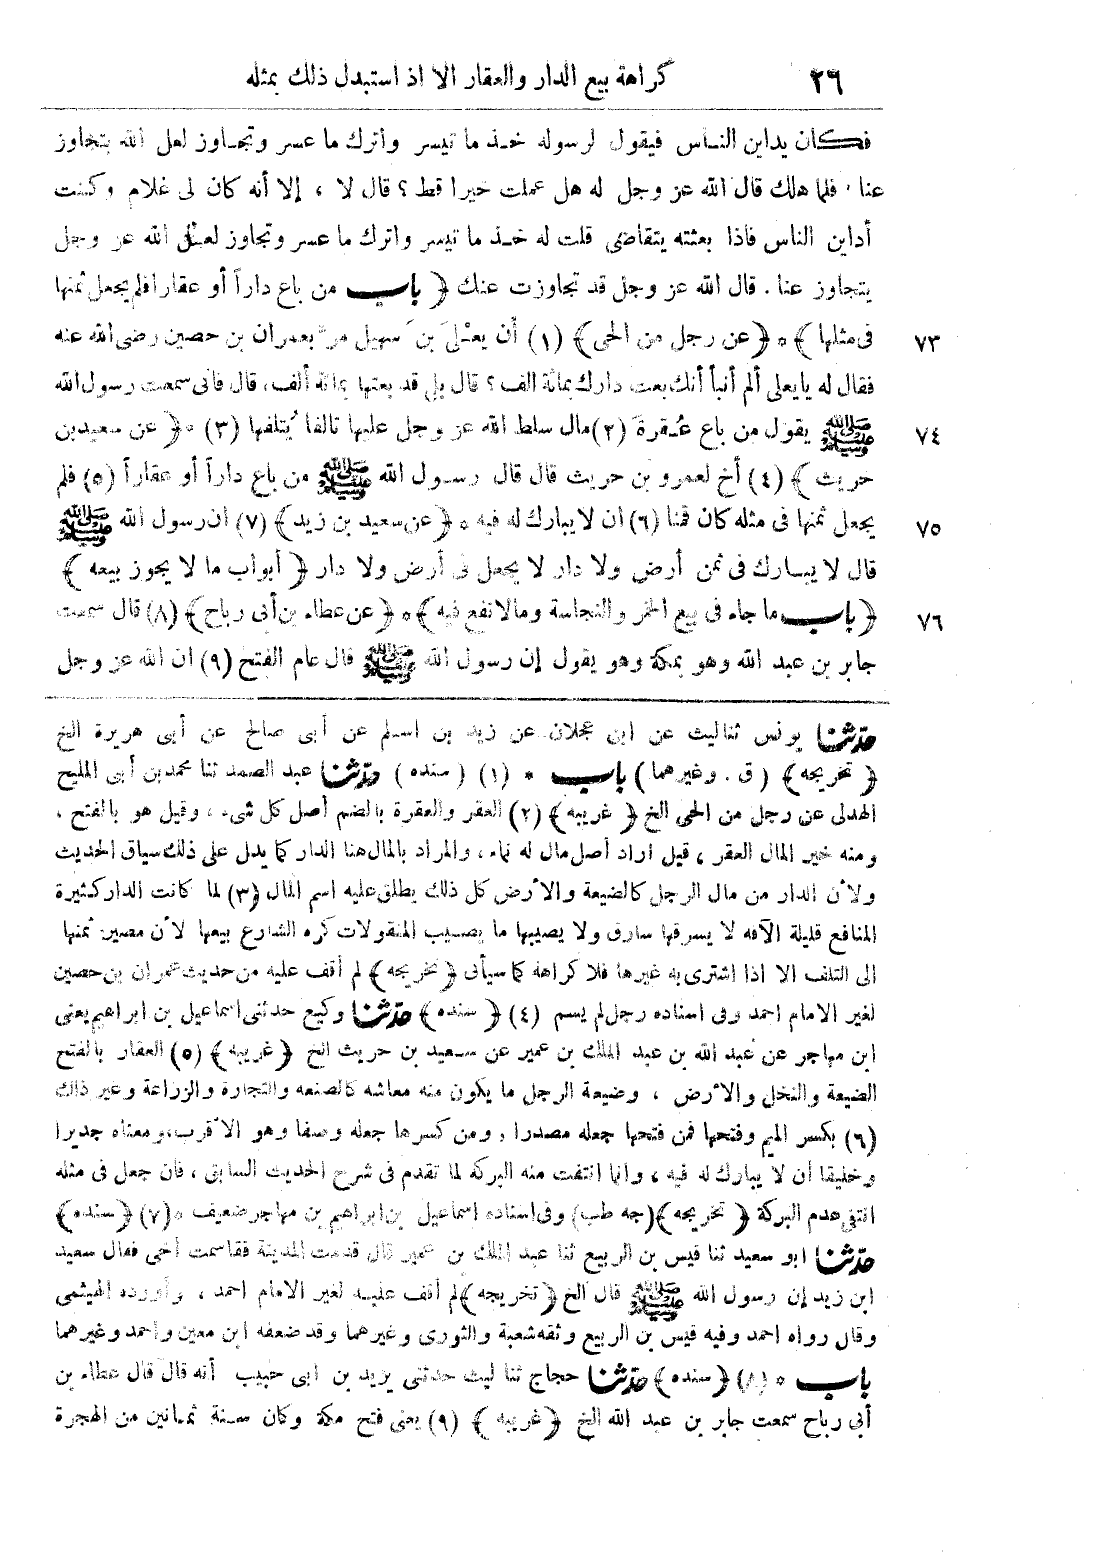 ٢٦ كراهة بيع الدار والعقار الا اذ استبدل ذلك بمثله
فكان يداين النـاس فيقول لرسوله خـذ ما تيسر واترك ما عسر وتجـاوز لعل الله يتجاوز
عنا ، فلما هلك قال الله عز وجل له هل عملت خيرا قط ؟ قال لا ، إلا أنه كان لى غلام وكنت
أداين الناس فاذا بعثته يتقاضى قلت له خـذ ما تيسر واترك ما عسر وتجاوز لعل الله عز وجل
يتجاوز عنا . قال الله عز وجل قد تجاوزت عنك ﴿ باب من باع داراً أو عقارا فلم يجعل ثمنها
٧٣ فى مثلها ﴾ * ﴿ عن رجل من الحى ﴾ (١) أن يعلى بن سهيل مر بعمران بن حصين رضى الله عنه
فقال له يا يعلى ألم أنبأ أنك بعت دارك بمائة الف ؟ قال بلى قد بعتها بمائة ألف، قال فانى سمعت رسول الله
٧٤ ﷺ يقول من باع عُقرةَ (٢) مال سلط الله عز وجل عليها تالفا يُتلفها (٣) * ﴿ عن سعيد بن
حريث ﴾ (٤) أخ لعمرو بن حريث قال قال رسـول الله ﷺ من باع داراً أو عقاراً (٥) فلم
٧٥ يجعل ثمنها فى مثله كان قمنا (٦) ان لا يبارك له فيه * ﴿ عن سعيد بن زيد ﴾ (٧) ان رسول الله ﷺ
قال لا يبـارك فى ثمن أرض ولا دار لا يجعل فى أرض ولا دار ﴿ أبواب ما لا يجوز بيعه ﴾
٧٦ ﴿ باب ما جاء فى بيع الخمر والنجاسة ومالا نفع فيه ﴾ * ﴿ عن عطاء بن أبى رباح ﴾ (٨) قال سمعت
جابر بن عبد الله وهو بمكة وهو يقول إن رسول الله ﷺ قال عام الفتح (٩) ان الله عز وجل
حدثنا يونس ثنا ليث عن ابن عجلان عن زيد بن اسلم عن أبى صالح عن أبى هريرة الخ
﴿ تخريجه ﴾ ( ق . وغيرهما ) باب * (١) ( سنده ) حدثنا عبد الصمد ثنا محمد بن أبى المليح
الهدلى عن رجل من الحى الخ ﴿ غريبه ﴾ (٢) العقر والعقرة بالضم أصل كل شىء ، وقيل هو بالفتح ،
ومنه خير المال العقر ، قيل اراد أصل مال له نماء ، والمراد بالمال هنا الدار كما يدل على ذلك سياق الحديث
ولأن الدار من مال الرجل كالضيعة والأرض كل ذلك يطلق عليه اسم المال (٣) لما كانت الدار كثيرة
المنافع قليلة الآفه لا يسرقها سارق ولا يصيبها ما يصـيب المنقولات كره الشارع بيعها لأن مصير ثمنها
الى التلف الا اذا اشترى به غيرها فلا كراهة كما سيأتى ﴿ تخريجه ﴾ لم أقف عليه من حديث عمران بن حصين
لغير الامام احمد وفى اسناده رجل لم يسم (٤) ﴿ سنده ﴾ حدثنا وكيع حدثنى اسماعيل بن ابراهيم يعنى
ابن مهاجر عن عبد الله بن عبد الملك بن عمير عن سـعيد بن حريث الخ ﴿ غريبه ﴾ (٥) العقار بالفتح
الضيعة والنخل والأرض ، وضيعة الرجل ما يكون منه معاشه كالصنعه والتجارة والزراعة وغير ذلك
(٦) بكسر الميم وفتحها فمن فتحها جعله مصدرا ، ومن كسرها جعله وصفا وهو الأقرب، ومعناه جديرا
وخليقا أن لا يبارك له فيه ، وانما انتفت منه البركه لما تقدم فى شرح الحديث السابق ، فان جعل فى مثله
انتفى عدم البركة ﴿ تخريجه ﴾ (جه طب) وفى اسناده اسماعيل بن ابراهيم بن مهاجر ضعيف * (٧) ﴿ سنده ﴾
حدثنا ابو سعيد ثنا قيس بن الربيع ثنا عبد الملك بن عمير قال قدمت المدينة فقاسمت أخى فقال سعيد
ابن زيد إن رسول الله ﷺ قال الخ ﴿ تخريجه ﴾ لم أقف عليـه لغير الامام احمد ، وأورده الهيثمى
وقال رواه احمد وفيه قيس بن الربيع وثقه شعبة والثورى وغيرهما وقد ضعفه ابن معين واحمد وغيرهما
باب * (٨) ﴿ سنده ﴾ حدثنا حجاج ثنا ليث حدثنى يزيد بن ابى حبيب أنه قال قال عطاء بن
أبى رباح سمعت جابر بن عبد الله الخ ﴿ غريبه ﴾ (٩) يعنى فتح مكة وكان سـنة ثمـانين من الهجرة